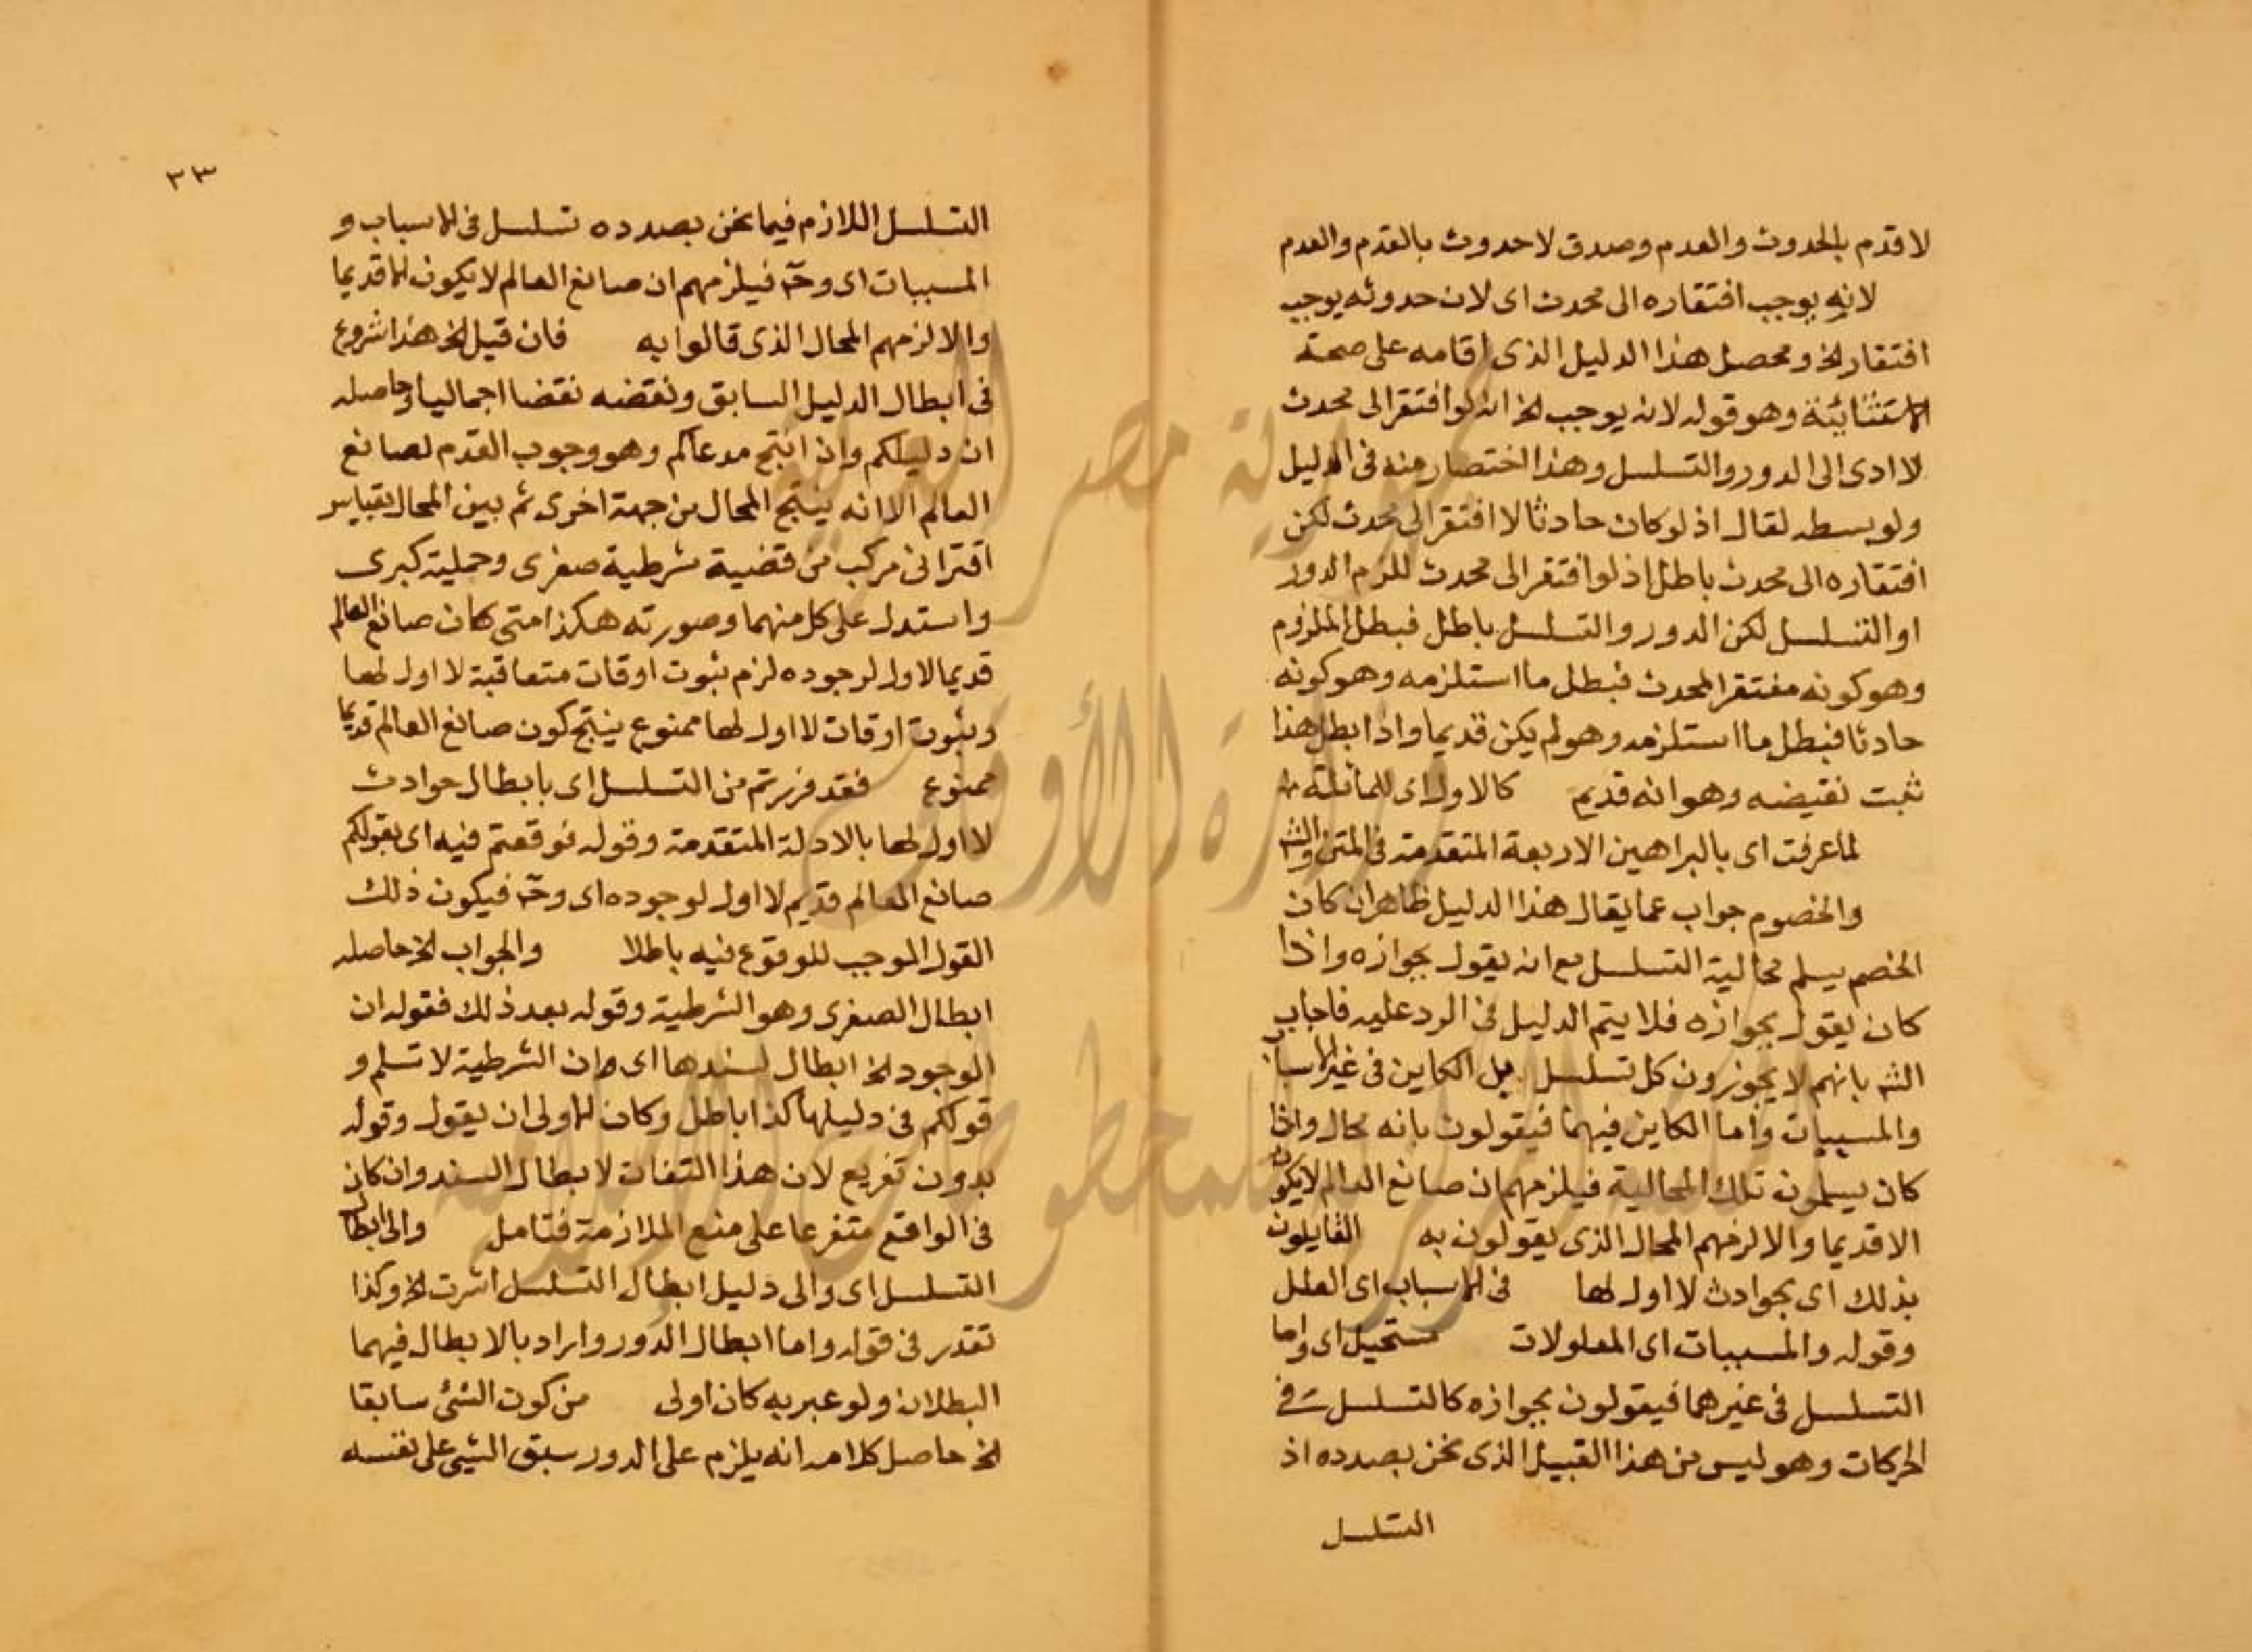 لا قدم بالحدوث والعدم وصدق لا حدوث بالقدم والعدم
لانه يوجب افتقاره الى محدث اى لان حدوثه يوجب
افتقار الخ ومحصل هذا الدليل الذى اقامه على صحة
الاستثنائية وهو قوله لانه يوجب الخ انه لو افتقر الى محدث
لا ادى الى الدور والتسلسل وهذا اختصار منه فى الدليل
ولو بسطه لقال اذ لو كان حادثا لا افتقر الى محدث لكن
افتقاره الى محدث باطل اذ لو افتقر الى محدث للزم الدور
او التسلسل لكن الدور والتسلسل باطل فبطل الملزوم
وهو كونه مفتقرا لمحدث فبطل ما استلزمه وهو كونه
حادثا فبطل ما استلزمه وهو لم يكن قديما واذا بطل هذا
ثبت نقيضه وهو انه قديم كالاول اى للماثلة
لما عرفت اى بالبراهين الاربعة المتقدمة فى المتن والشـ
والخصوم جواب عما يقال هذا الدليل ظاهر ان كان
الخصم يسلم محالية التسلسل مع انه يقول بجوازه واذا
كان يقول بجوازه فلا يتم الدليل فى الرد عليه فاجاب
الشـ بانهم لا يجوزون كل تسلسل بل الكاين فى غير الاسبا
والمسببات واما الكاين فيهما فيقولون بانه محال واذا
كان يسلمون تلك المحالية فيلزمهم ان صانع العالم لا يكون
الا قديما والا لزمهم المحال الذى يقولون به القايلون
بذلك اى بحوادث لا اول لها فى الاسباب اى العلل
وقوله والمسببات اى المعلولات مستحيل اى واما
التسلسل فى غيرهما فيقولون بجوازه كالتسلسل فى
الحركات وهو ليس من هذا القبيل الذى نحن بصدده اذ
التسلسل
٣٣
التسلسل اللازم فيما نحن بصدده تسلسل فى الاسباب و
المسببات اى وحـ فيلزمهم ان صانع العالم لا يكون الا قديما
والا لزمهم المحال الذى قالوا به فان قيل الخ هذا شروع
فى ابطال الدليل السابق ونقضه نقضا اجماليا وحاصله
ان دليلكم وان انتج مدعاكم وهو وجوب القدم لصانع
العالم الا انه ينتج المحال من جهة اخرى ثم بين المحال بقياس
اقترانى مركب من قضية شرطية صغرى وحملية كبرى
واستدل على كل منهما وصورته هكذا متى كان صانع العالم
قديما لا اول لوجوده لزم ثبوت اوقات متعاقبة لا اول لها
وثبوت اوقات لا اول لها ممنوع ينتج كون صانع العالم قديما
ممنوع فقد فررتم من التسلسل اى بابطال حوادث
لا اول لها بالادلة المتقدمة وقوله فوقعتم فيه اى بقولكم
صانع العالم قديم لا اول لوجوده اى وحـ فيكون ذلك
القول الموجب للوقوع فيه باطلا والجواب الخ حاصله
ابطال الصغرى وهو الشرطية وقوله بعد ذلك فقوله ان
الوجود الخ ابطال لسندها اى وان الشرطية لا تسلم و
قولكم فى دليلها كذا باطل وكان الاولى ان يقول وقوله
بدون تفريع لان هذا التفات لابطال السند وان كان
فى الواقع متفرعا على منع الملازمة فتامل والى ابطال
التسلسل اى والى دليل ابطال التسلسل اشرت الخ وكذا
تقدر فى قوله واما ابطال الدور واراد بالابطال فيهما
البطلان ولو عبر به كان اولى من كون الشئ سابقا
الخ حاصل كلامه انه يلزم على الدور سبق الشئ على نفسه